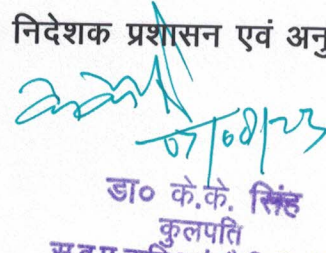 निदेशक प्रशासन एवं अनु
07/08/23
डा० के.के. सिंह
कुलपति